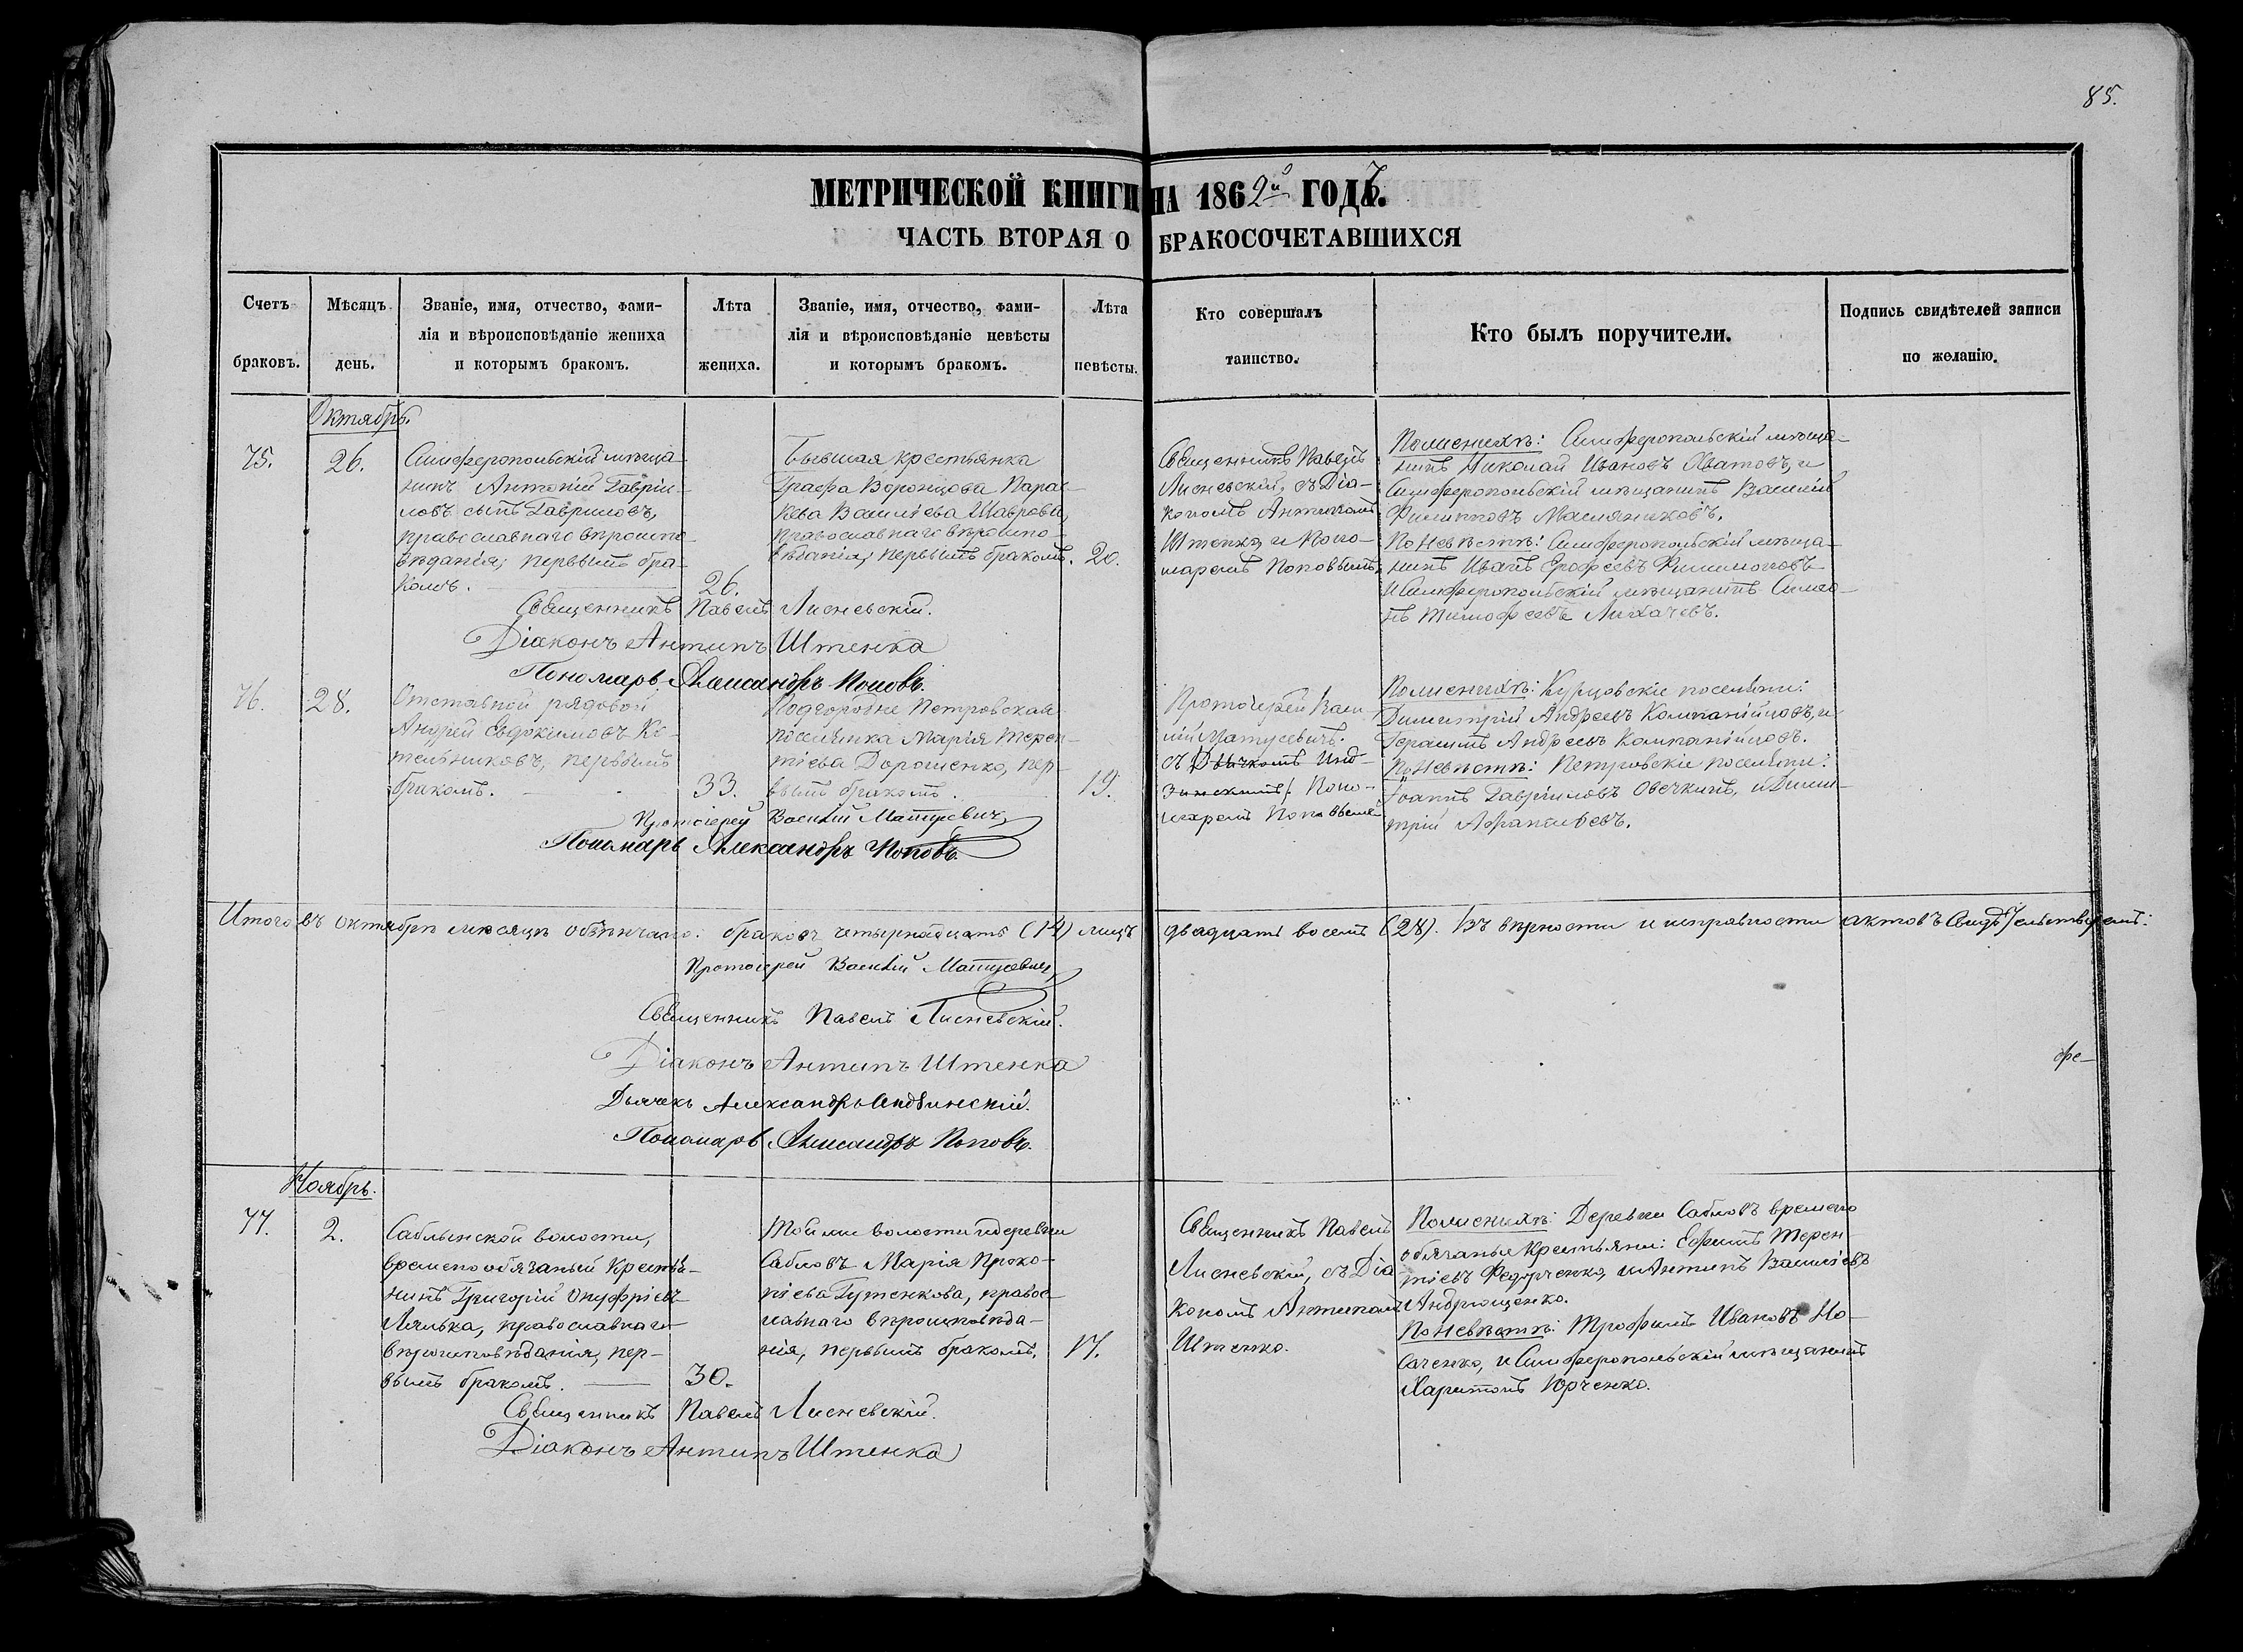 85.
МЕТРИЧЕСКОЙ КНИГИ НА 1862й ГОДЪ.
ЧАСТЬ ВТОРАЯ О БРАКОСОЧЕТАВШИХСЯ
Счетъ
браковъ.
Мѣсяцъ
день.
Званіе, имя, отчество, фами-
лія и вѣроисповѣданіе жениха
и которымъ бракомъ.
Лѣта
жениха.
Званіе, имя, отчество, фами-
лія и вѣроисповѣданіе невѣсты
и которымъ бракомъ.
Лѣта
невѣсты.
Кто совершалъ
таинство.
Кто былъ поручители.
Подпись свидѣтелей записи
по желанію.
Октябрь.
75.
26.
Симферопольскій мѣща-
нинъ Антоній Гаврiи-
ловъ сынъ Гавриловъ,
православнаго вѣроиспо-
вѣданія, первымъ бра-
комъ.
26.
Бывшая крестьянка
Графа Воронцова Парас-
кева Васильева Шаврова,
православнаго вѣроиспо-
вѣданія, первымъ бракомъ.
20.
Священникъ Павелъ
Лисневскій, съ Діа-
кономъ Антипомъ
Штенко, и Поно-
маремъ Поповымъ.
По женихѣ: Симферопольскій мѣща-
нинъ Николай Ивановъ Хватовъ, и
Симферопольскій мѣщанинъ Василій
Филипповъ Масляниковъ.
По невѣстѣ: Симферопольскій мѣща-
нинъ Иванъ Ерофеевъ Филимоновъ
и Симферопольскій мѣщанинъ Симео-
нъ Тимофеевъ Лихачевъ.
Священникъ Павелъ Лисневскій.
Діаконъ Антипъ Штенка
Пономарь Александръ Поповъ.
76.
28.
Отставной рядовой
Андрей Евдокимовъ Ко-
тельниковъ, первымъ
бракомъ.
33.
Подгородне Петровская
поселянка Марія Терен-
тіева Дорошенко, пер-
вымъ бракомъ.
19.
Протоіерей Васи-
лій Матусевичъ.
съ Дьячкомъ Инд-
зинскимъ/ Поно-
маремъ Поповымъ
По женихѣ: Курцовскіе поселяни:
Димитрій Андреевъ Компанійцовъ, и
Герасимъ Андреевъ Компанійцовъ.
По невѣстѣ: Петровскіе поселяни:
Іоаннъ Гавриловъ Овечкинъ, и Дими-
трій Афанасьевъ.
Протоіерей Василій Матусевичъ
Пономарь Александръ Поповъ
Итого въ октябрѣ мѣсяцѣ обвѣнчано: браковъ четырнадцать (14) лицъ двадцать восемь (28). Въ вѣрности и исправности актовъ свидѣтельствуемъ:
Протоіерей Василій Матусевичъ
Священникъ Павелъ Лисневскій.
Діаконъ Антипъ Штенка
Дьячекъ Александръ Индзинскій.
Пономарь Александръ Поповъ.
Ноябрь.
77.
2.
Саблынской волости,
временообязаный крестья-
нинъ Григорій Онуфріевъ
Лялька, православнаго
вѣроисповѣданія, пер-
вымъ бракомъ.
30.
Той же волости и деревни
Сабловъ Марія Проко-
піева Гутенкова, правос-
лавнаго вѣроисповѣда-
нія, первымъ бракомъ.
17.
Священникъ Павелъ
Лисневскій, съ Діа
кономъ Антипомъ
Штенко.
По женихѣ: Деревни Сабловъ времено
обязаные крестьяни: Ефимъ Терен
тіевъ Федорченко, и Антипъ Васильевъ
Андрющенко.
По невѣстѣ: Трофимъ Ивановъ Но-
саченко, и Симферопольскій мѣщанинъ
Харитонъ Юрченко.
Священникъ Павелъ Лисневскій.
Діаконъ Антипъ Штенка